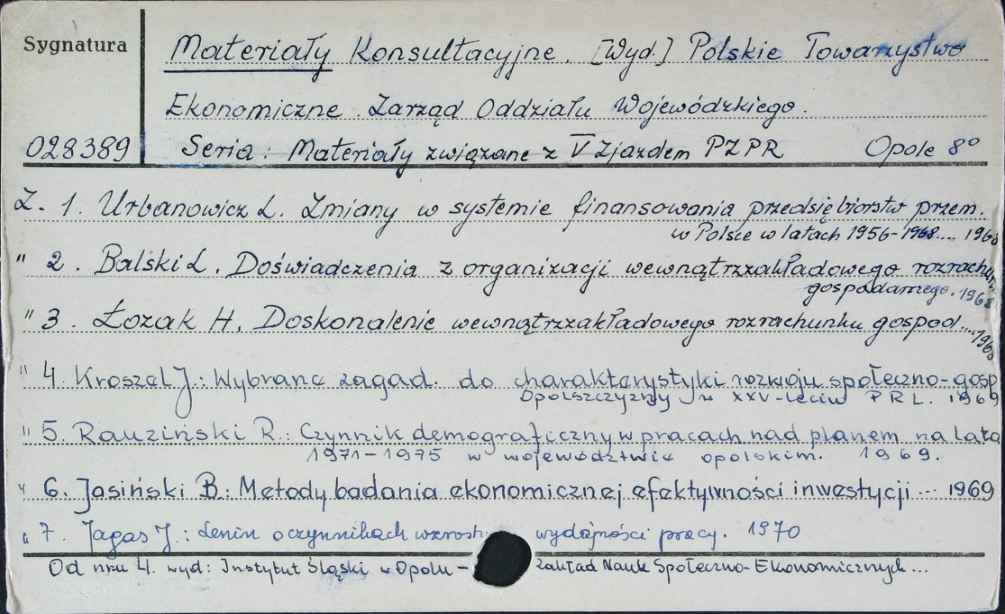 Sygnatura
Materiały Konsultacyjne. [Wyd.] Polskie Towarzystwo
Ekonomiczne. Zarząd Oddziału Wojewódzkiego.
028389
Seria: Materiały związane z V Zjazdem PZPR Opole 8°
Z. 1. Urbanowicz L. Zmiany w systemie finansowania przedsiębiorstw przem.
w Polsce w latach 1956-1968.... 1968
" 2. Balski L. Doświadczenia z organizacji wewnątrzzakładowego rozrachun.
gospodarczego. 1968
" 3. Łozak H. Doskonalenie wewnątrzzakładowego rozrachunku gospod.... 1968
" 4. Kroszel J.: Wybrane zagad. do charakterystyki rozwoju społeczno-gosp
Opolszczyzny w XXV-leciu PRL. 1969
" 5. Rauziński R.: Czynnik demograficzny w pracach nad planem na lata
1971-1975 w województwie opolskim. 1969.
" 6. Jasiński B.: Metody badania ekonomicznej efektywności inwestycji... 1969
" 7. Jagas J.: Lenin o czynnikach wzrostu wydajności pracy. 1970
Od nru 4. wyd: Instytut Śląski w Opolu - Zakład Nauk Społeczno-Ekonomicznych...